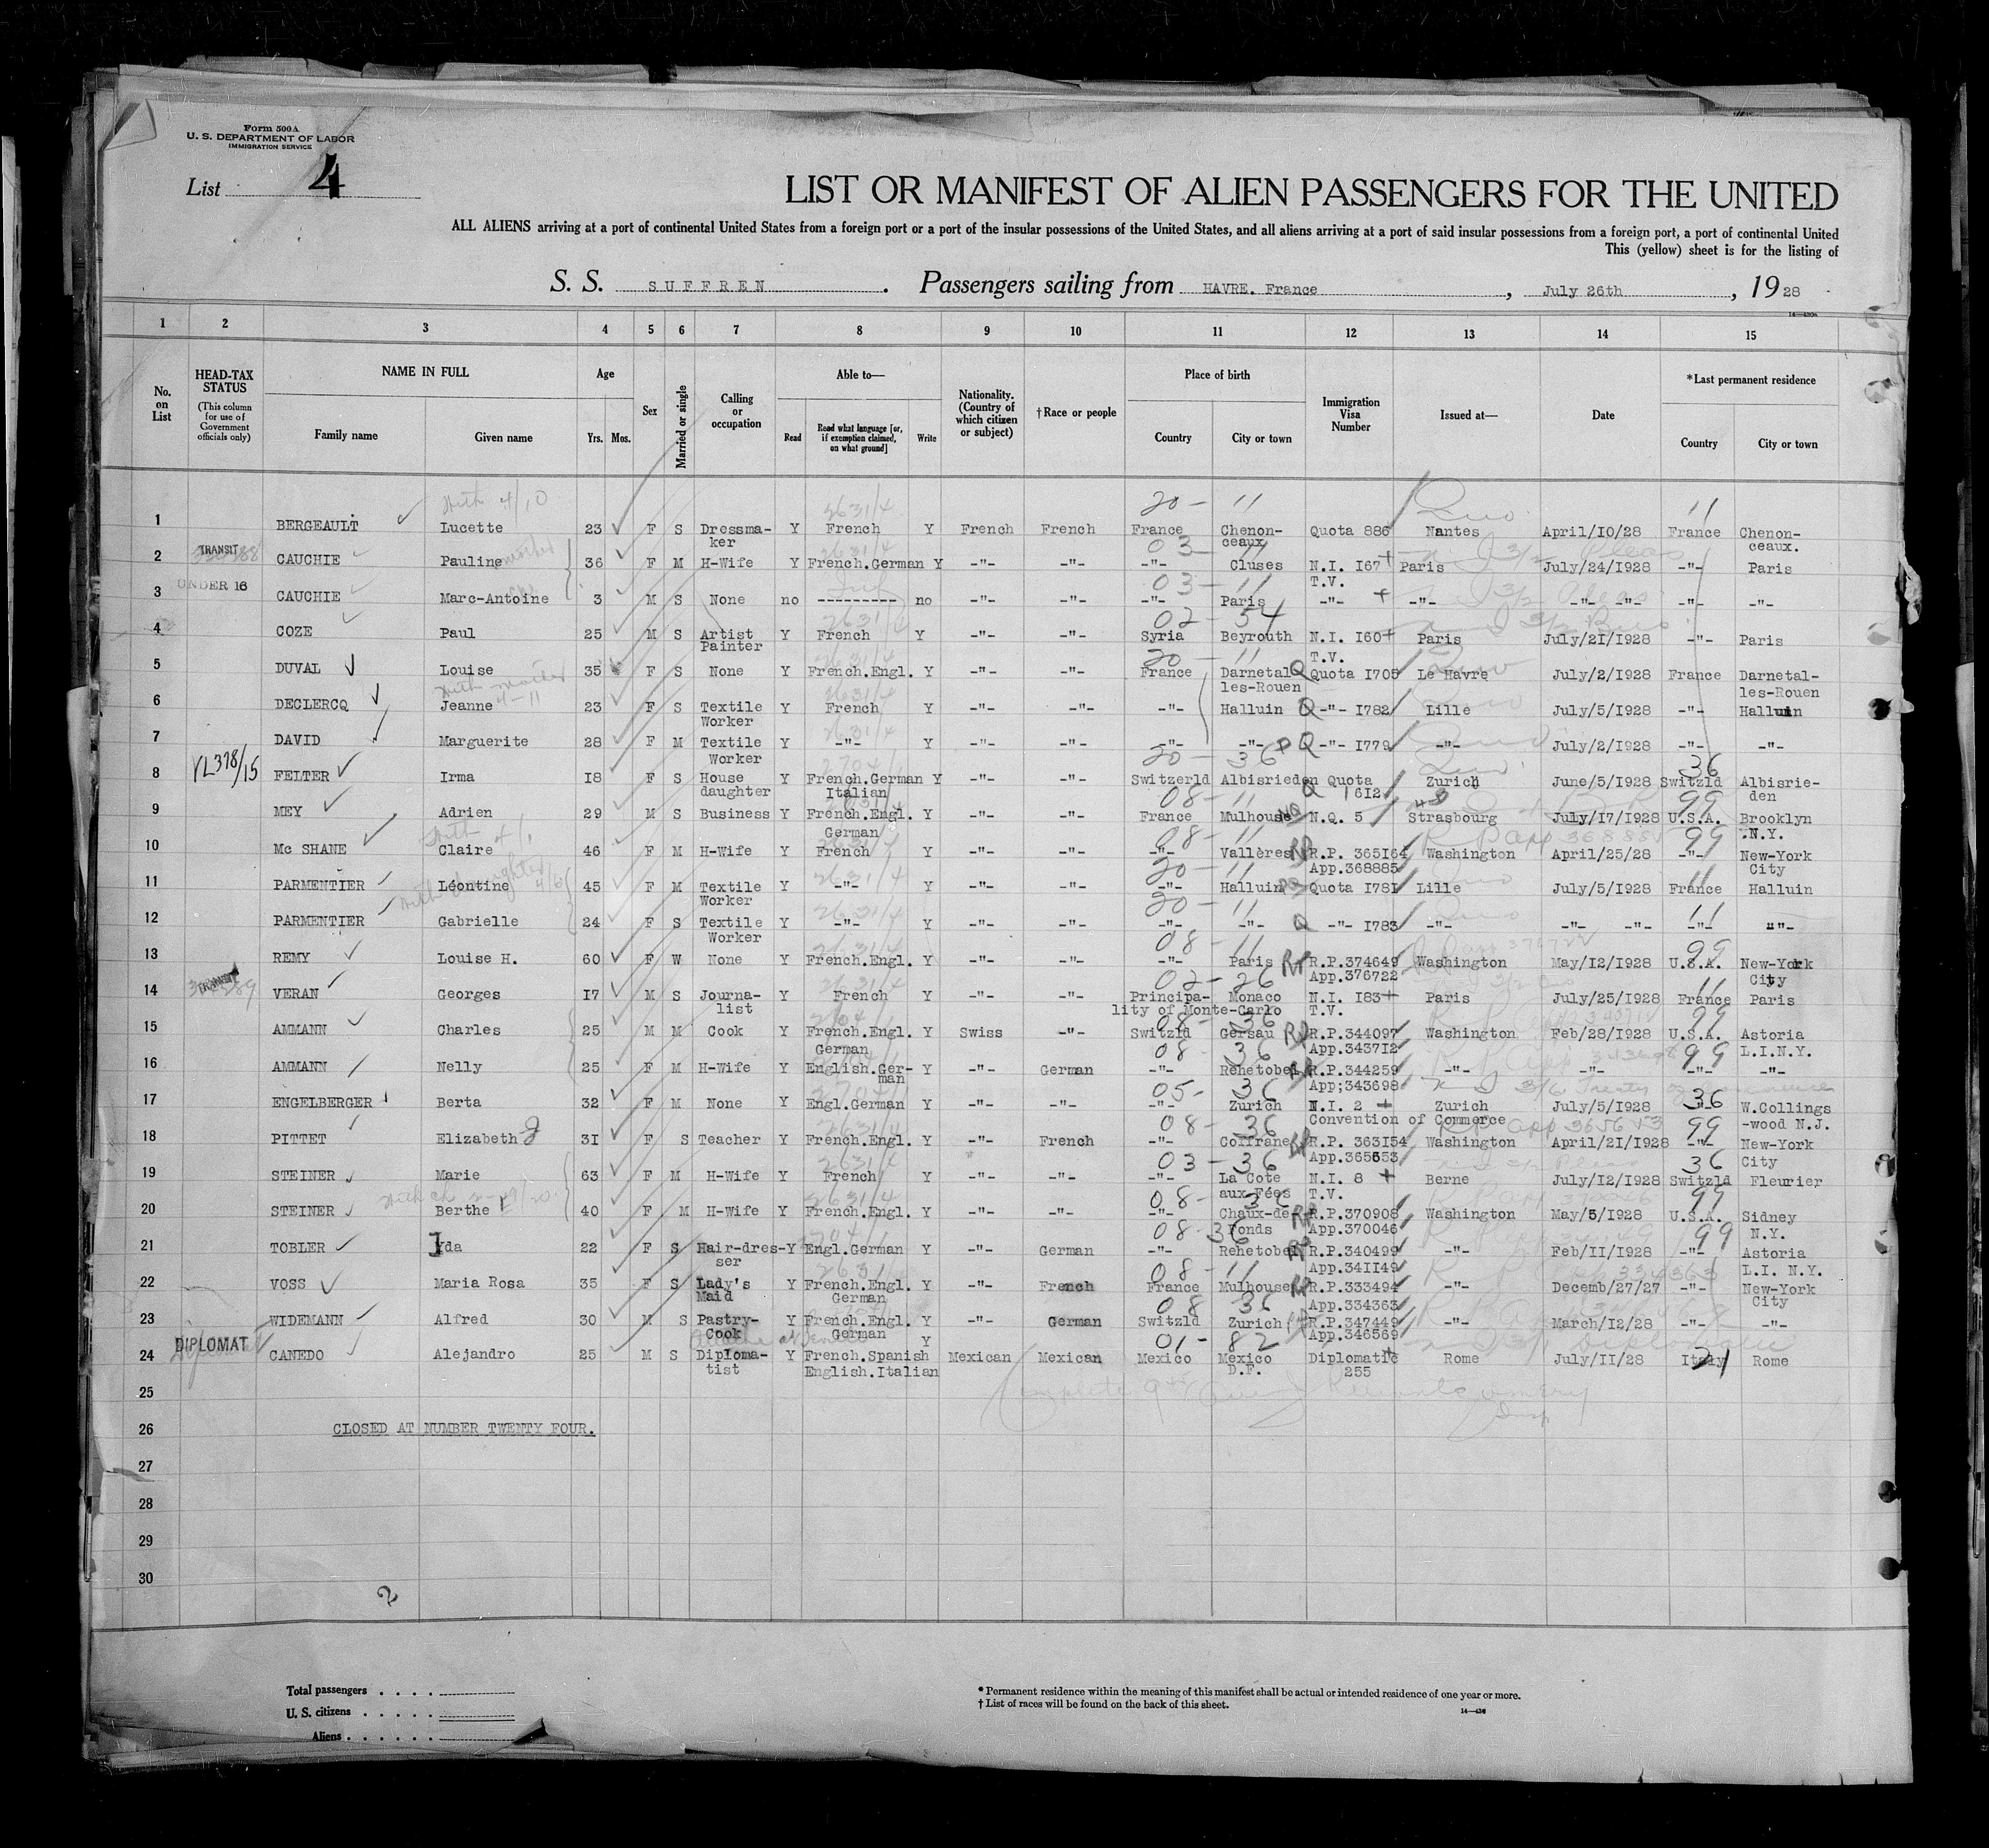 Form 500A
U. S. DEPARTMENT OF LABOR
IMMIGRATION SERVICE
List 4
LIST OR MANIFEST OF ALIEN PASSENGERS FOR THE UNITED
ALL ALIENS arriving at a port of continental United States from a foreign port or a port of the insular possessions of the United States, and all aliens arriving at a port of said insular possessions from a foreign port, a port of continental United
This (yellow) sheet is for the listing of
S. S. SUFFREN. Passengers sailing from HAVRE. France, July 26th, 1928
14—430a
1 2 3 4 5 6 7 8 9 10 11 12 13 14 15
No. on List
HEAD-TAX STATUS (This column for use of Government officials only)
NAME IN FULL Family name Given name
Age Yrs. Mos.
Sex
Married or single
Calling or occupation
Able to— Read Read what language [or, if exemption claimed, on what ground] Write
Nationality. (Country of which citizen or subject)
†Race or people
Place of birth Country City or town
Immigration Visa Number
Issued at—
Date
*Last permanent residence Country City or town
With 4/10 2631/4 20- 11 11
1 BERGEAULT Lucette 23 F S Dressma- Y French Y French French France Chenon- Quota 886 Nantes April/10/28 France Chenon-
ker ceaux ceaux.
TRANSIT 2631/4 03- 11
2 CAUCHIE Pauline 36 F M H-Wife Y French.German Y -"- -"- -"- Cluses N.I. I67 Paris July/24/1928 -"- Paris
UNDER 16 03- 11 T.V.
3 CAUCHIE Marc-Antoine 3 M S None no --------- no -"- -"- -"- Paris -"- -"- -"- -"- -"- -"-
2631/4 02- 54
4 COZE Paul 25 M S Artist Y French Y -"- -"- Syria Beyrouth N.I. I60 Paris July/2I/1928 -"- Paris
Painter T.V.
2631/4 20- 11
5 DUVAL Louise 35 F S None Y French.Engl. Y -"- -"- France Darnetal Q Quota I705 Le Havre July/2/1928 France Darnetal-
With mother 4-11 les-Rouen les-Rouen
6 DECLERCQ Jeanne 23 F S Textile Y French Y -"- -"- -"- Halluin Q -"- I782 Lille July/5/1928 -"- Halluin
Worker
7 DAVID Marguerite 28 F M Textile Y -"- Y -"- -"- -"- -"- Q -"- I779 -"- July/2/1928 -"- -"-
Worker 20- 36 36
8 VL378/15 FELTER Irma I8 F S House Y French.German Y -"- -"- Switzerld Albisrieden Quota Zurich June/5/1928 Switzld Albisrie-
daughter Italian 08- 11 Q 1612 99 den
9 MEY Adrien 29 M S Business Y French.Engl. Y -"- -"- France Mulhouse N.Q. 5 Strasbourg July/17/1928 U.S.A. Brooklyn
With 4/1 German 08- 11 99 .N.Y.
10 Mc SHANE Claire 46 F M H-Wife Y French Y -"- -"- -"- Vallères R.P. 365I64 Washington April/25/28 -"- New-York
20- 11 App.368885 11 City
11 PARMENTIER Léontine 45 F M Textile Y -"- Y -"- -"- -"- Halluin Quota I78I Lille July/5/1928 France Halluin
Worker 20- 11 11
12 PARMENTIER Gabrielle 24 F S Textile Y -"- Y -"- -"- -"- -"- Q -"- I783 -"- -"- -"- -"-
Worker 08- 11 99
13 REMY Louise H. 60 F W None Y French.Engl. Y -"- -"- -"- Paris R.P.374649 Washington May/12/1928 U.S.A. New-York
TRANSIT 02- 26 App.376722 11 City
14 VERAN Georges I7 M S Journa- Y French Y -"- -"- Principa- Monaco N.I. I83 Paris July/25/1928 France Paris
list lity of Monte-Carlo T.V.
08- 36 99
15 AMMANN Charles 25 M M Cook Y French.Engl. Y Swiss -"- Switzld Gersau R.P.344097 Washington Feb/28/1928 U.S.A. Astoria
German 08- 36 App.343712 99 L.I.N.Y.
16 AMMANN Nelly 25 F M H-Wife Y English.Ger- Y -"- German -"- Rehetobel R.P.344259 -"- -"- -"- -"-
man 05- 36 App;343698
17 ENGELBERGER Berta 32 F M None Y Engl.German Y -"- -"- -"- Zurich N.I. 2 Zurich July/5/1928 36 W.Collings
08- 36 Convention of Commerce 99 -wood N.J.
18 PITTET Elizabeth 3I F S Teacher Y French.Engl. Y -"- French -"- Coffrane R.P. 363I54 Washington April/2I/1928 -"- New-York
03- 36 App.365553 36 City
19 STEINER Marie 63 F M H-Wife Y French Y -"- -"- -"- La Cote N.I. 8 Berne July/12/1928 Switzld Fleurier
aux Fées T.V. 99
20 STEINER Berthe E 40 F M H-Wife Y French.Engl. Y -"- -"- -"- Chaux-de R.P.370908 Washington May/5/1928 U.S.A. Sidney
08- 36 Fonds App.370046 99 N.Y.
21 TOBLER Yda 22 F S Hair-dres- Y Engl.German Y -"- German -"- Rehetobel R.P.340499 -"- Feb/II/1928 -"- Astoria
ser 08- 11 App.34II49 L.I. N.Y.
22 VOSS Maria Rosa 35 F S Lady's Y French.Engl. Y -"- French France Mulhouse R.P.333494 -"- Decemb/27/27 -"- New-York
Maid German 08 36 App.334363 City
23 WIDEMANN Alfred 30 M S Pastry- Y French.Engl. Y -"- German Switzld Zurich R.P.347449 -"- March/12/28 -"- -"-
Cook German 01- 82 App.346569
DIPLOMAT
24 CANEDO Alejandro 25 M S Diploma- Y French.Spanish Y Mexican Mexican Mexico Mexico Diplomatic Rome July/II/28 Italy Rome
tist English.Italian D.F. 255
25
26 CLOSED AT NUMBER TWENTY FOUR.
27
28
29
30
2
Total passengers . . . .
U. S. citizens . . . . .
Aliens . . . . . .
* Permanent residence within the meaning of this manifest shall be actual or intended residence of one year or more.
† List of races will be found on the back of this sheet.
14—430